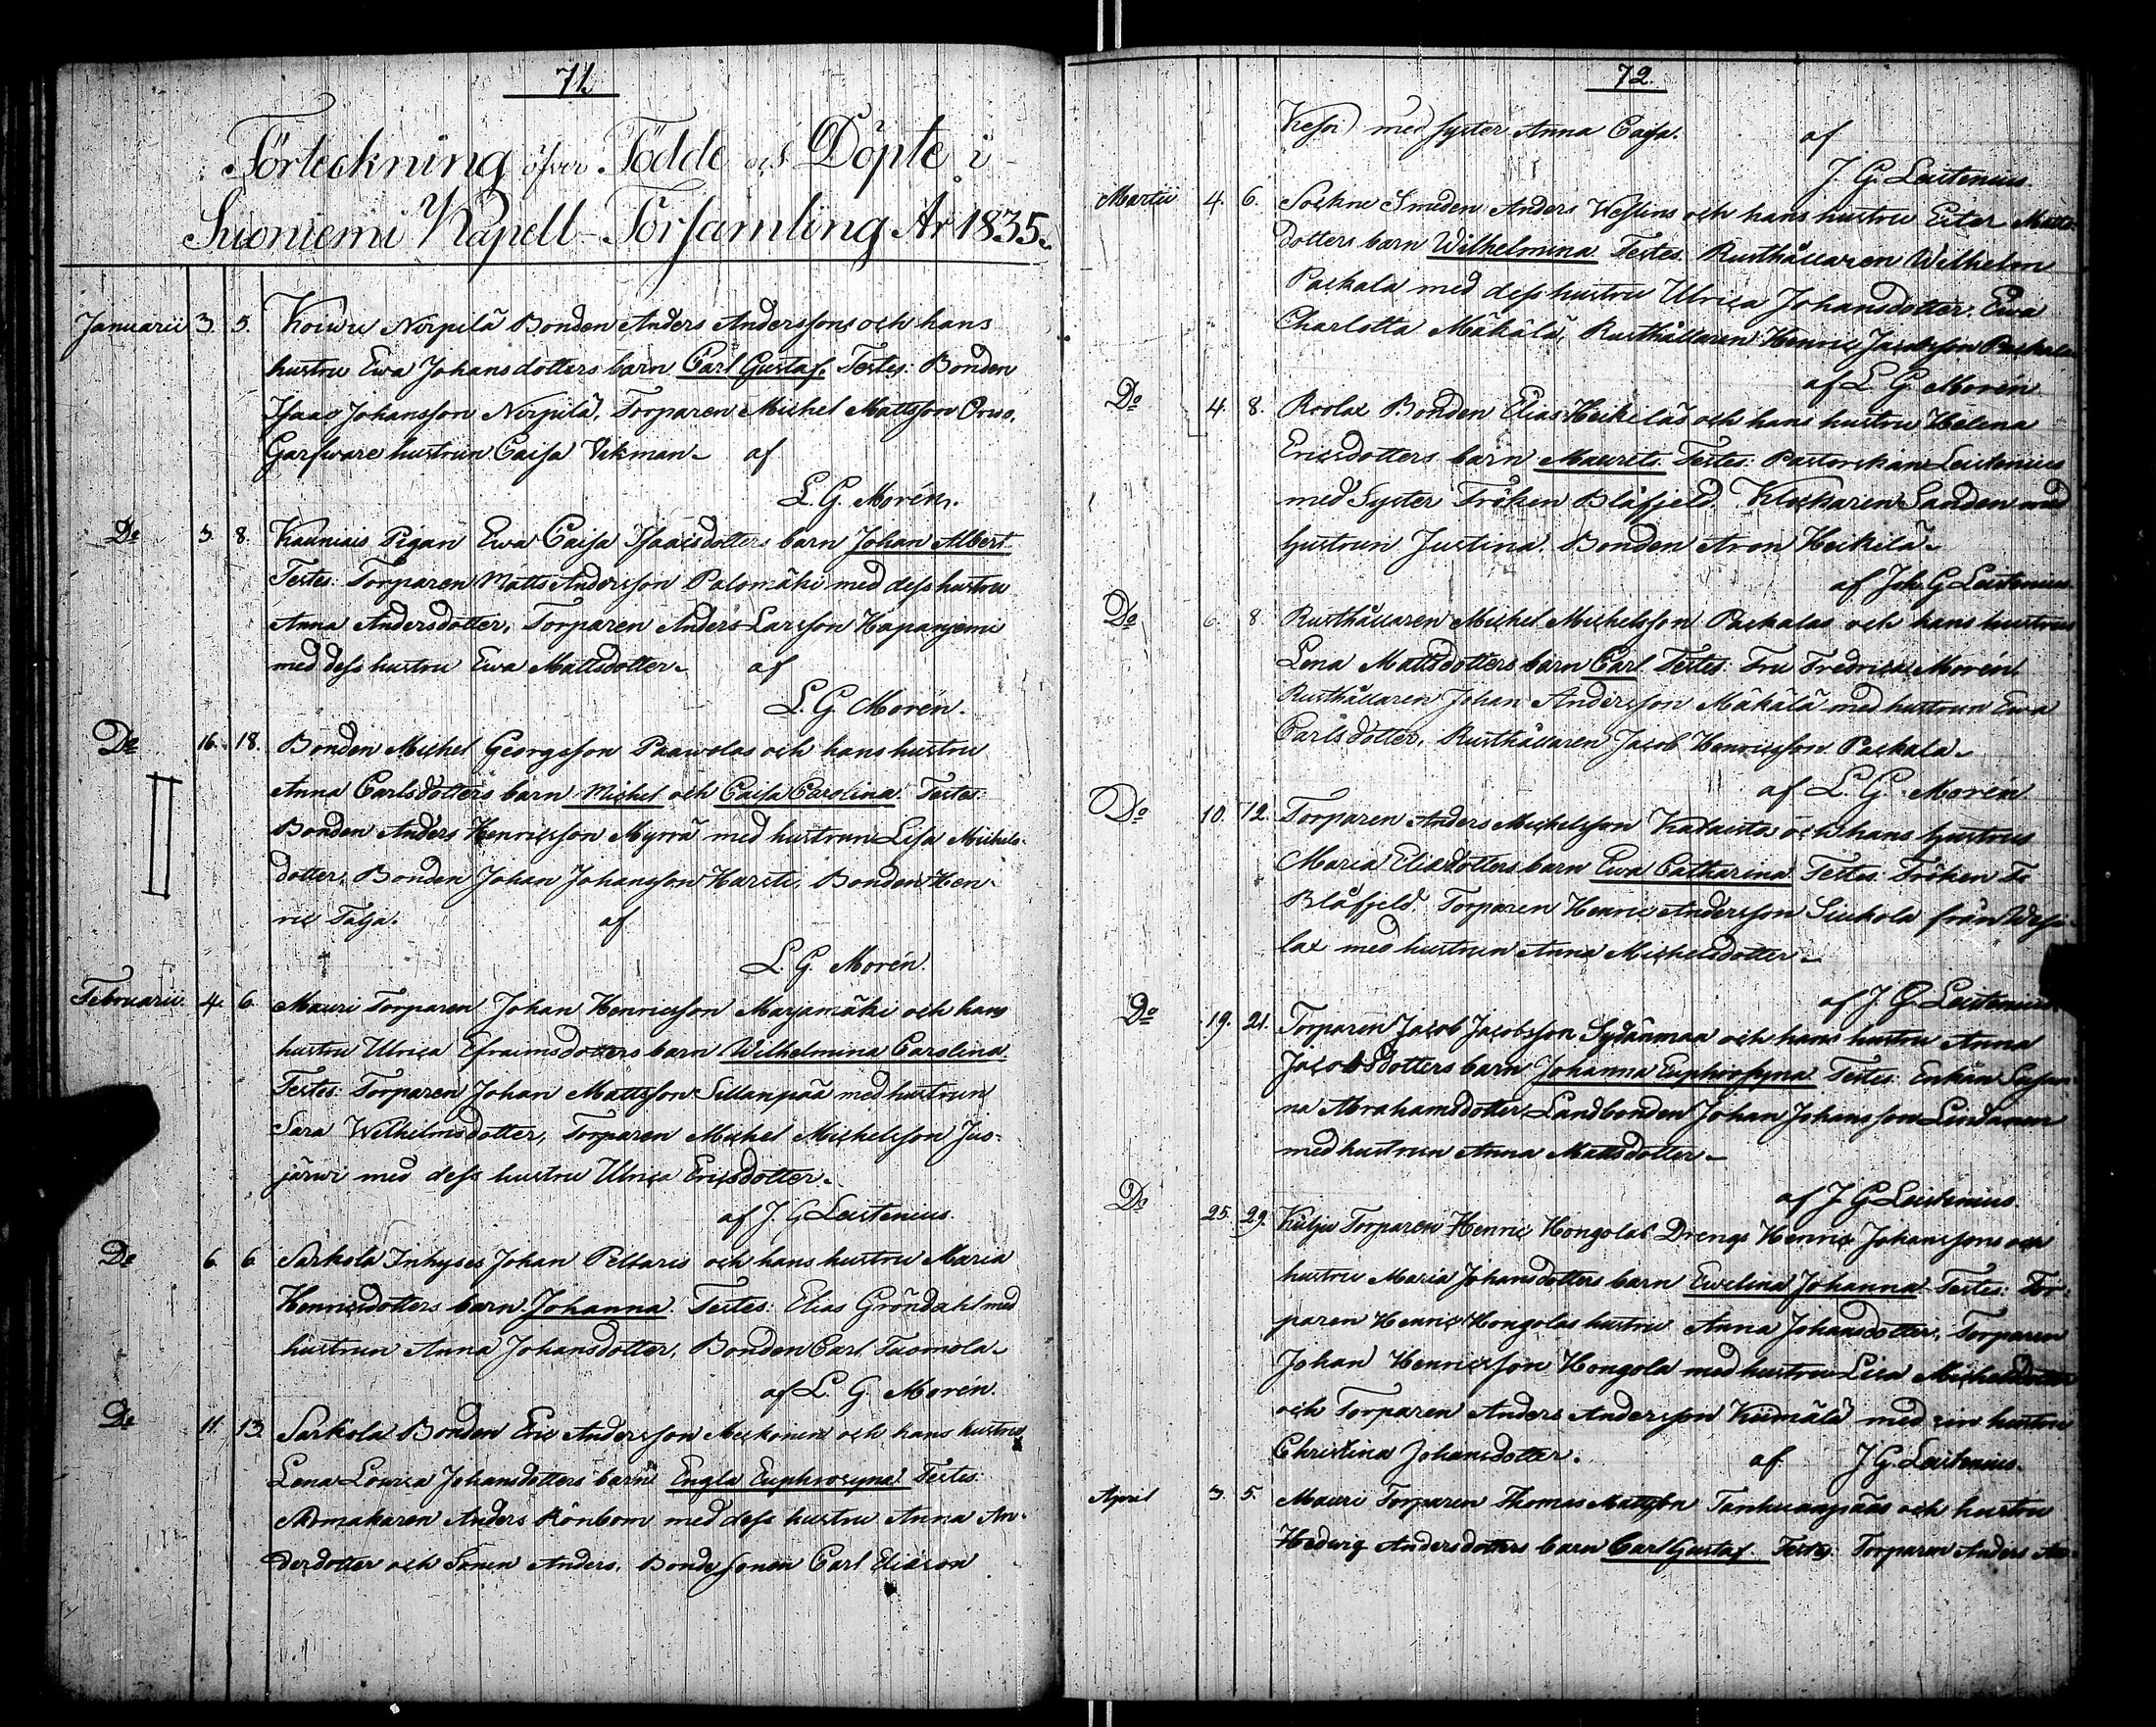 71.
Förteckning öfver Födde och Döpte i
Suoniemi Kapell-Församling År 1835.
Januarii 3. 5. Koiwu Nirpilä Bonden Anders Anderssons och hans
hustru Ewa Johansdotters barn Carl Gustaf. Testes: Bonden
Isaac Johansson Nirpilä, Torparen Michel Mattsson Orwo,
Garfware hustrun Caisa Vikman. af
L. G. Morén.
Do 3. 8. Kauniais Pigan Ewa Caisa Isaacsdotters barn Johan Albert.
Testes: Torparen Matts Andersson Palomäki med dess hustru
Anna Andersdotter, Torparen Anders Larsson Hapaniemi
med dess hustru Ewa Mattsdotter. af
L. G. Morén.
Do 16. 18. Bonden Michel Georgsson Paawolas och hans hustru
Anna Carlsdotters barn Michel och Caisa Carolina. Testes:
Bonden Anders Henricsson Myrrä med hustrun Lisa Michels-
dotter, Bonden Johan Johansson Harsti, Bonden Hen-
ric Talja. af
L. G. Morén.
Februarii 4. 6. Mauri Torparen Johan Henricsson Marjamäki och hans
hustru Ulrica Efraimsdotters barn Wilhelmina Carolina.
Testes: Torparen Johan Mattsson Sillanpää med hustrun
Sara Wilhelmsdotter, Torparen Michel Michelsson Jus-
järwi med dess hustru Ulrica Ericsdotter.
af J. G Leistenius.
Do 6. 6. Sarkola Inhyses Johan Peltaris och hans hustru Maria
Henricsdotters barn Johanna. Testes: Elias Gröndahl med
hustrun Anna Johansdotter, Bonden Carl Tuomola.
af L. G. Morén.
Do 11. 13. Sarkola Bonden Eric Andersson Meckonen och hans hustru
Lena Lowisa Johansdotters barn Engla Euphrosyna. Testes:
Skomakaren Anders Rönbom med dess hustru Anna An-
dersdotter och Sonen Anders, Bonde sonen Carl Eliason
72.
med syster Anna Caisa. af
J. G. Leistenius.
Martii 4. 6. Sockne Smeden Anders Wesslins och hans hustru Ester Matts-
dotters barn Wilhelmina. Testes. Rusthållaren Wilhelm
Packala med dess hustru Ulrica Johansdotter. Ewa
Charlotta Mäkälä, Rusthållaren Henric Jacobsson Packala
af L G Morén
Do 4. 8. Roolax Bonden Elias Heikeläs och hans hustru Helena
Ericsdotters barn Maurits. Testes: Pastorskan Leistenius
med Syster Fröken Blåfjeld. Klockaren Sanden med
hustrun Justina. Bonden Aron Heikilä.
af Joh. G Leistenius.
Do 6. 8. Rusthållaren Michel Michelsson Packalas och hans hustrus
Lena Mattsdotters barn Carl. Testes: Fru Fredrica Morén
Rusthållaren Johan Andersson Mäkälä med hustrun Ewa
Carlsdotter, Rusthållaren Jacob Henricsson Packala.
af L. G. Morén
Do 10. 12. Torparen Anders Michelsson Katawistos och hans hustrus
Maria Eliædotters barn Ewa Catharina. Testes: Fröken Fr
Blåfjeld. Torparen Henric Andersson Siukola från Wesi-
lax med hustrun Anna Michelsdotter.
af J. G Leistenius.
Do 19. 21. Torparen Jacob Jacobsson Sydänmaa och hans hustru Anna
Jacobsdotters barn Johanna Euphrosyna. Testes: Enkan Susan-
na Abrahamsdotter, Landbonden Johan Johansson Lindanen
med hustrun Anna Mattsdotter.
af J G Leistenius.
Do 25. 29. Kulju Torparen Henric Hongolas Drengs Henric Johanssons och
hustru Maria Johansdotters barn Ewelina Johanna. Testes: Tor-
paren Henric Hongolas hustru Anna Johansdotter, Torparen
Johan Henricsson Hongola med hustru Lisa Michelsdotter
och Torparen Anders Andersson Kiimälä med sin hustru
Christina Johansdotter. af J. G. Leistenius.
April 3. 5. Mauri Torparen Thomas Mattsson Tanhuanpääs och hustru
Hedwig Andersdotters barn Carl Gustaf. Testes: Torparen Anders An-